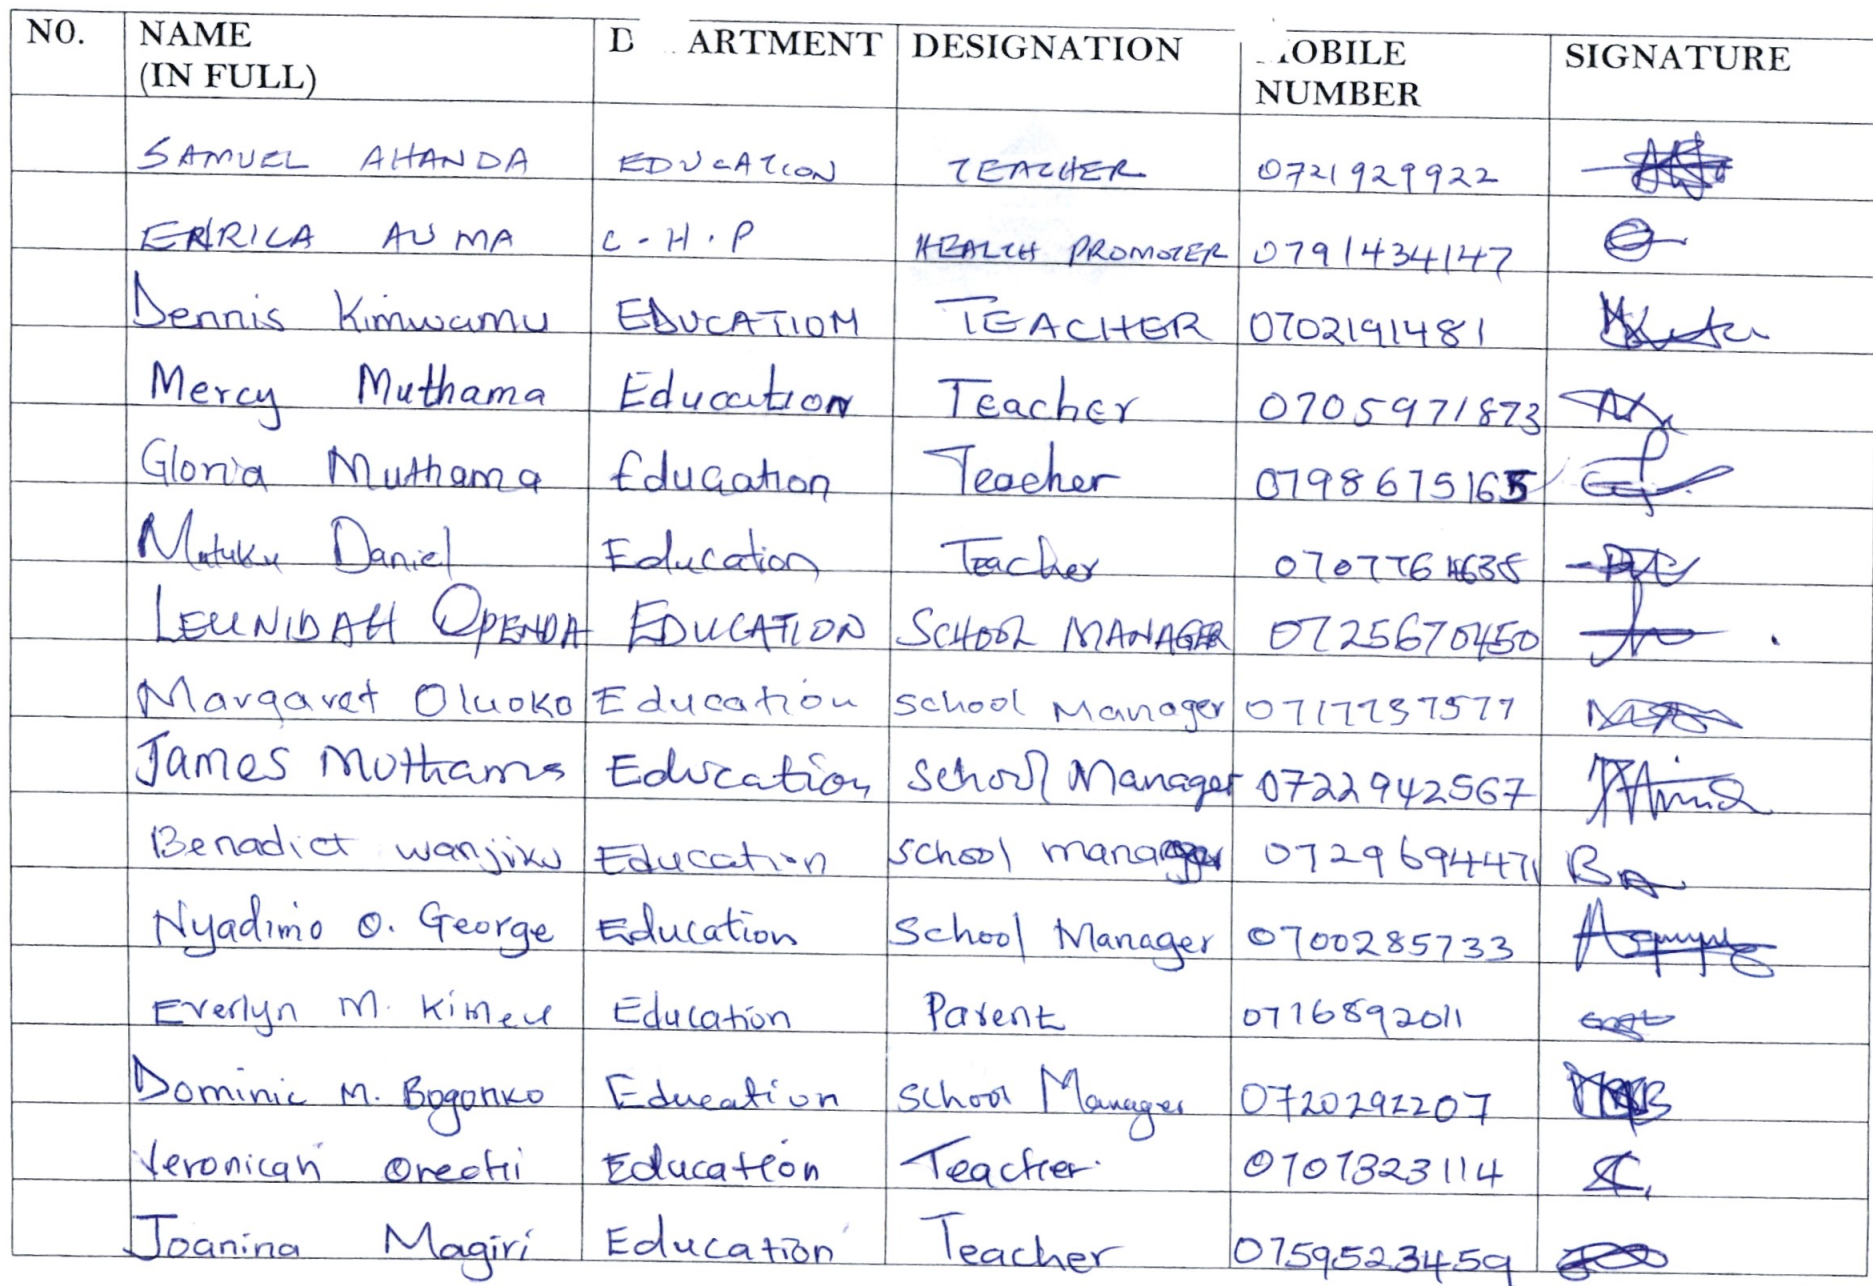 NO. NAME D ARTMENT DESIGNATION OBILE SIGNATURE
(IN FULL) NUMBER
SAMUEL AHANDA EDUCATION TEACHER 0721929922
ERRICA AUMA C.H.P HEALTH PROMOTER 0791434147
Dennis Kimwamu EDUCATION TEACHER 0702191481
Mercy Muthama Education Teacher 0705971873
Gloria Muthama Education Teacher 0798675165
Mutuku Daniel Education Teacher 0707764635
LEUNIDAH OPENDA EDUCATION SCHOOL MANAGER 0725670450
Margaret Oluoko Education School Manager 0717737577
James Muthama Education School Manager 0722942567
Benadict wanjiku Education School manager 0729694471
Nyadimo O. George Education School Manager 0700285733
Everlyn M. Kimeu Education Parent 0716892011
Dominic M. Bogonko Education School Manager 0720292207
Veronicah Orechi Education Teacher 0707323114
Joanina Magiri Education Teacher 0759523459